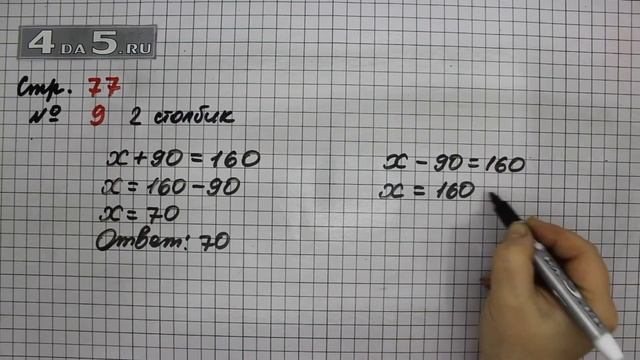 4 ДА 5.RU
Стр. 77
№ 9 2 столбик
x + 90 = 160
x = 160 - 90
x = 70
Ответ: 70
x - 90 = 160
x = 160